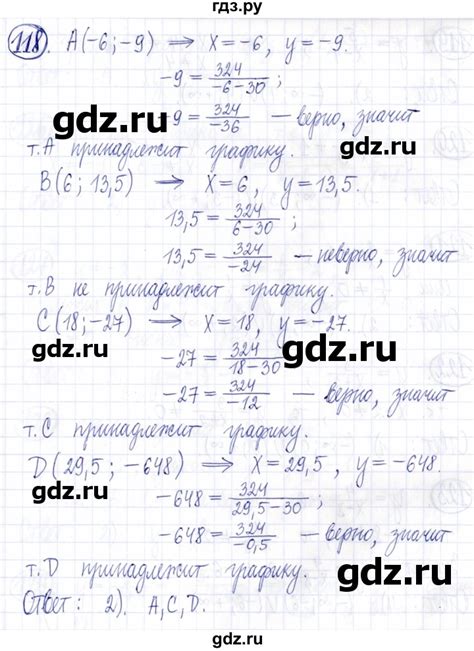 гдз.ру
118. A(-6;-9) ⟹ X=-6, y=-9.
-9 = 324/-6-30 ;
gdz.ru gdz.ru
-9 = 324/-36 — верно, значит
т.А принадлежит графику.
B(6; 13,5) ⟹ X=6, y=13,5.
13,5 = 324/6-30
gdz.ru
13,5 = 324/-24 — неверно, значит
т.В не принадлежит графику.
C(18;-27) ⟹ X=18, y=-27.
gdz.ru gdz.ru
-27 = 324/18-30
-27 = 324/-12 — верно, значит
gdz.ru
т.С принадлежит графику.
D(29,5; -648) ⟹ X=29,5, y=-648.
gdz.ru
-648 = 324/29,5-30
-648 = 324/-0,5 — верно, значит
gdz.ru
т.D принадлежит графику.
Ответ: 2). A,C,D.
gdz.ru gdz.ru